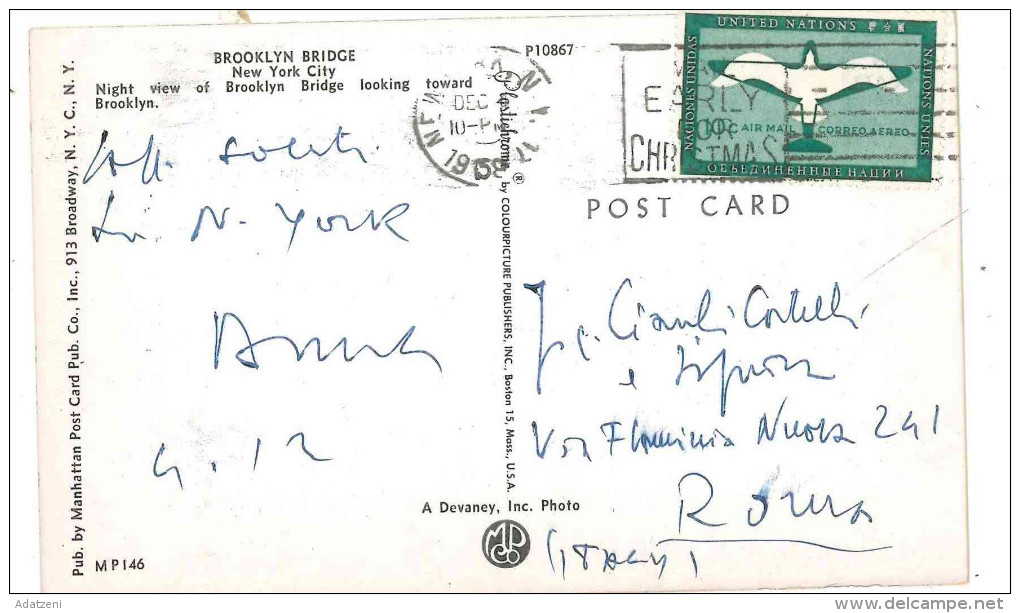 BROOKLYN BRIDGE
New York City
Night view of Brooklyn Bridge looking toward
Brooklyn.
P10867
Plastichrome ® by COLOURPICTURE PUBLISHERS, INC., Boston 15, Mass., U.S.A.
Pub. by Manhattan Post Card Pub. Co., Inc., 913 Broadway, N. Y. C., N. Y.
DEC
1958
EARLY
FOR
CHRISTMAS
UNITED NATIONS
NACIONES UNIDAS
NATIONS UNIES
10c AIR MAIL CORREO AEREO
ОБЪЕДИНЕННЫЕ НАЦИИ
POST CARD
N. YORK
e Signora
Via Flaminia Nuova 241
Roma
(ITALY)
A Devaney, Inc. Photo
MPCo
MP146
Adatzeni
www.delcampe.net